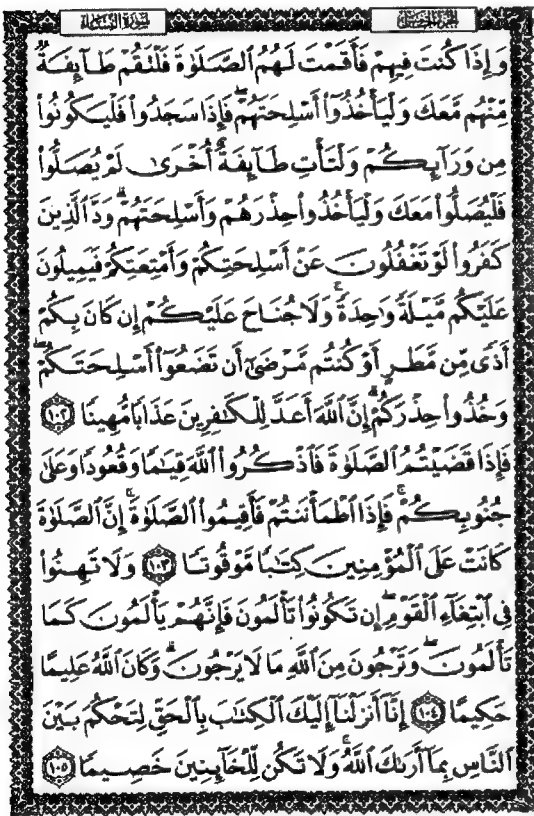 الجزء الخامس
سورة النساء
وَإِذَا كُنتَ فِيهِمْ فَأَقَمْتَ لَهُمُ ٱلصَّلَوٰةَ فَلْتَقُمْ طَآئِفَةٌ
مِّنْهُم مَّعَكَ وَلْيَأْخُذُوٓا۟ أَسْلِحَتَهُمْ ۖ فَإِذَا سَجَدُوا۟ فَلْيَكُونُوا۟
مِن وَرَآئِكُمْ وَلْتَأْتِ طَآئِفَةٌ أُخْرَىٰ لَمْ يُصَلُّوا۟
فَلْيُصَلُّوا۟ مَعَكَ وَلْيَأْخُذُوا۟ حِذْرَهُمْ وَأَسْلِحَتَهُمْ ۗ وَدَّ ٱلَّذِينَ
كَفَرُوا۟ لَوْ تَغْفُلُونَ عَنْ أَسْلِحَتِكُمْ وَأَمْتِعَتِكُمْ فَيَمِيلُونَ
عَلَيْكُم مَّيْلَةً وَٰحِدَةً ۚ وَلَا جُنَاحَ عَلَيْكُمْ إِن كَانَ بِكُمْ
أَذًى مِّن مَّطَرٍ أَوْ كُنتُم مَّرْضَىٰٓ أَن تَضَعُوٓا۟ أَسْلِحَتَكُمْ ۖ
وَخُذُوا۟ حِذْرَكُمْ ۗ إِنَّ ٱللَّهَ أَعَدَّ لِلْكَٰفِرِينَ عَذَابًا مُّهِينًا ١٠٢
فَإِذَا قَضَيْتُمُ ٱلصَّلَوٰةَ فَٱذْكُرُوا۟ ٱللَّهَ قِيَٰمًا وَقُعُودًا وَعَلَىٰ
جُنُوبِكُمْ ۚ فَإِذَا ٱطْمَأْنَنتُمْ فَأَقِيمُوا۟ ٱلصَّلَوٰةَ ۚ إِنَّ ٱلصَّلَوٰةَ
كَانَتْ عَلَى ٱلْمُؤْمِنِينَ كِتَٰبًا مَّوْقُوتًا ١٠٣ وَلَا تَهِنُوا۟
فِى ٱبْتِغَآءِ ٱلْقَوْمِ ۖ إِن تَكُونُوا۟ تَأْلَمُونَ فَإِنَّهُمْ يَأْلَمُونَ كَمَا
تَأْلَمُونَ ۖ وَتَرْجُونَ مِنَ ٱللَّهِ مَا لَا يَرْجُونَ ۗ وَكَانَ ٱللَّهُ عَلِيمًا
حَكِيمًا ١٠٤ إِنَّآ أَنزَلْنَآ إِلَيْكَ ٱلْكِتَٰبَ بِٱلْحَقِّ لِتَحْكُمَ بَيْنَ
ٱلنَّاسِ بِمَآ أَرَىٰكَ ٱللَّهُ ۚ وَلَا تَكُن لِّلْخَآئِنِينَ خَصِيمًا ١٠٥